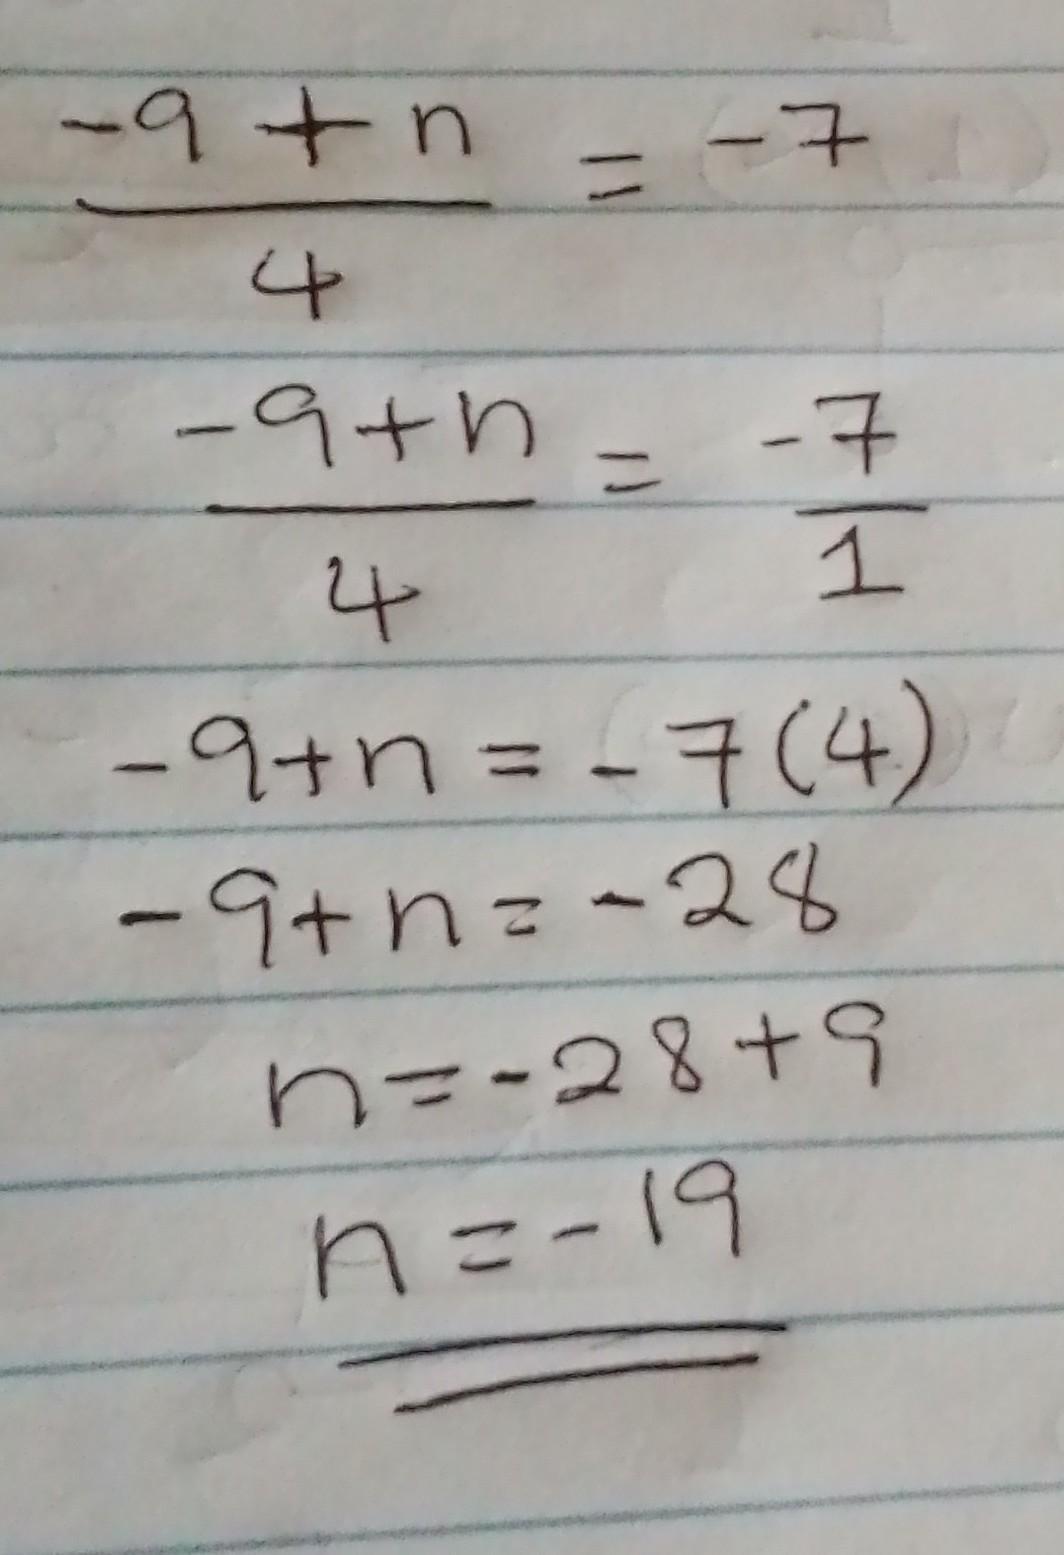 -9 + n / 4 = -7
-9+n / 4 = -7 / 1
-9+n = -7(4)
-9+n = -28
n = -28+9
n = -19